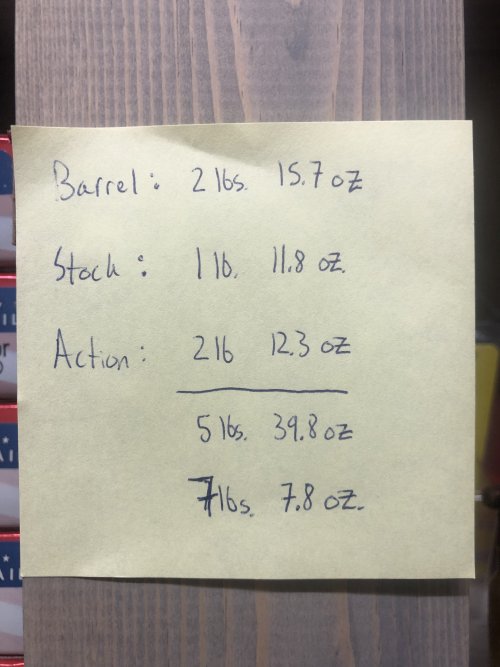 Barrel: 2 lbs. 15.7 oz
Stock: 1 lb. 11.8 oz.
Action: 2 lb 12.3 oz
5 lbs. 39.8 oz
7 lbs. 7.8 oz.